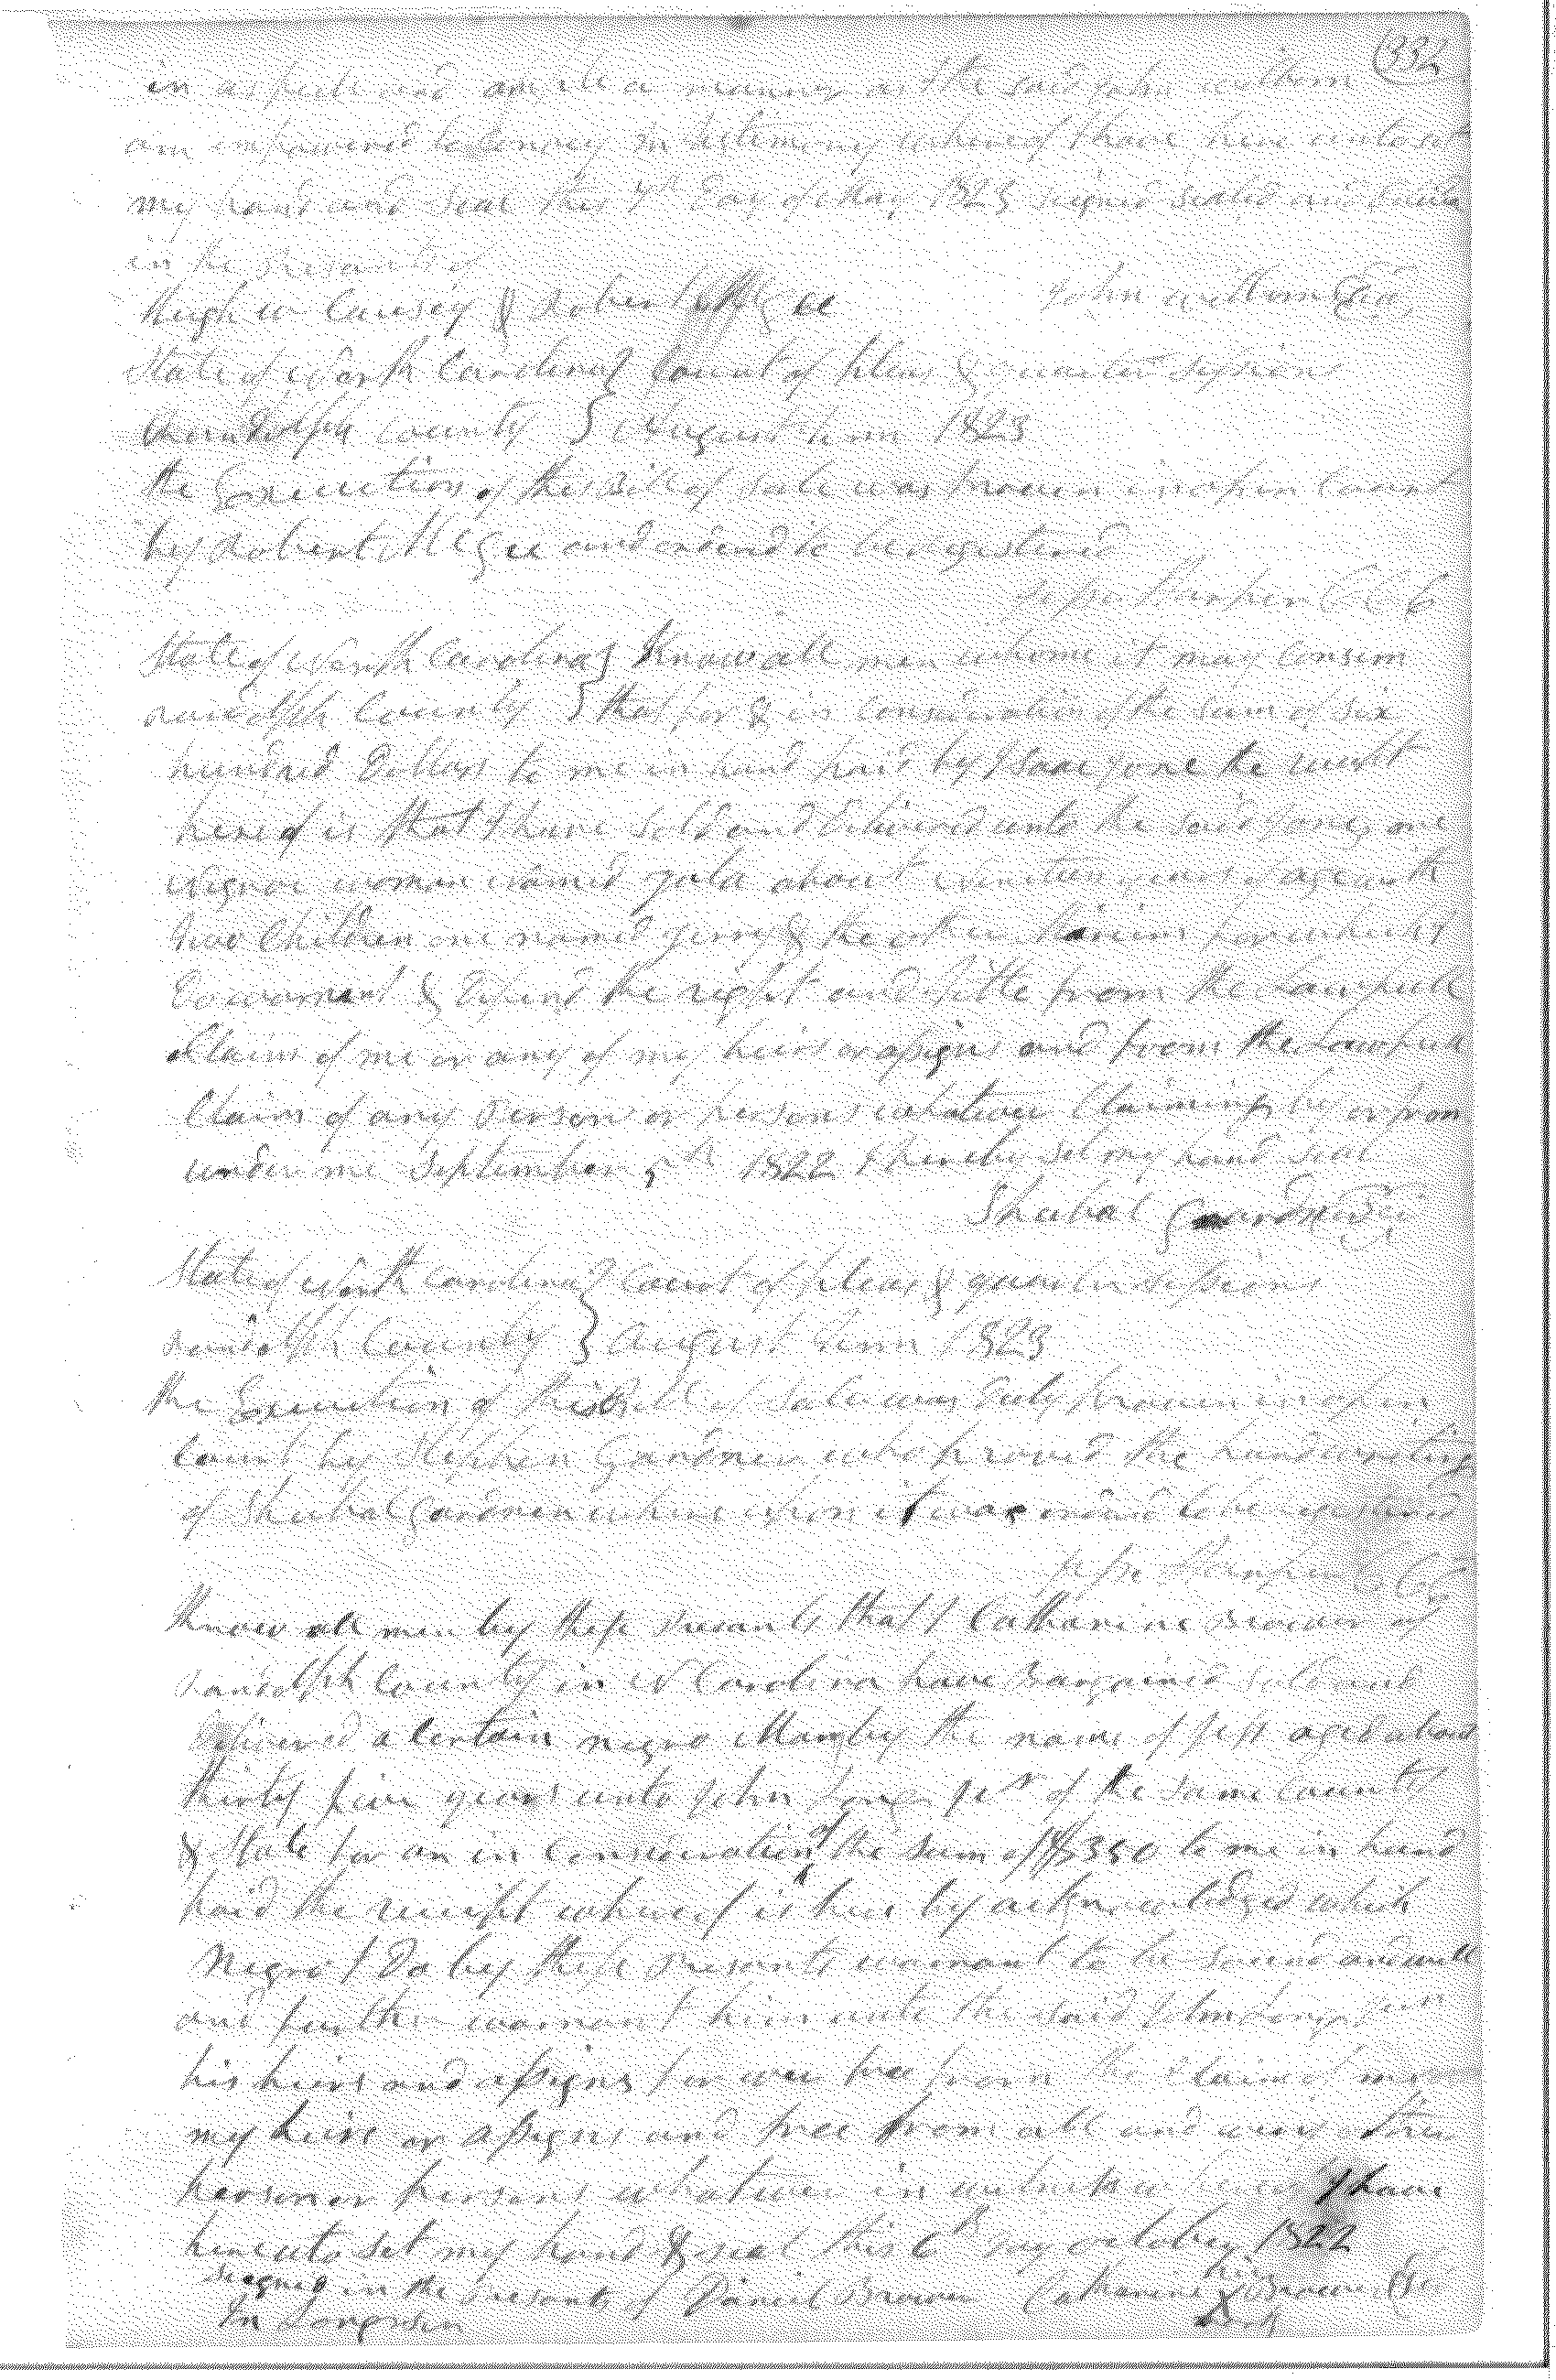 332
in as full and ample a manner as I the said John
am impowered to Convey In testimony whereof I have here unto set
my hand and seal this day of May 1823 signed sealed and
in the presants of
Hugh W Causey & Robert McGee John
State of North Carolina } Court of pleas & quarter sessions
Randolph County } August Term 1823
the Execution of this Bill of sale was proven in open Court
by Robert McGee and orderd to be registered
Jesse Harper C C C
State of North Carolina } Know all men whome it may Consirn
randolph County } that for & in Consideration of the sum of six
hundred Dollars to me in hand paid by Isaac Jone the receipt
hereof is that I have sold and Delivered unto the said Jones one
Negroe woman named about years of age with
two Children one named Jerry & the other for which I
Do warrent & Defend the right and title from the Lawfull
Claim of me or any of my heirs or assigns and from the Lawfull
Claim of any Person or persons whatever Claiming by or from
under me September 5th 1822 I hereby set my hand seal
Shubal Gardner
State of North Carolina } Court of pleas & quarter sessions
randolph County } August Term 1823
the Execution of this Bill of Sale was Duly proven in open
Court by Stephen Gardner who proved the handwriting
of Shubal Gardner where upon it was orderd to be registered
Jesse Harper C C C
Know all men by these presants that I Catharine Brower of
randolph County in N Carolina have Bargained sold and
Delivered a Certain negro Man by the name of Jeff aged about
thirty five years unto John Long senr of the same County
& State for an in Consideration of the sum of $350 to me in hand
paid the receipt whereof is here by acknowledged which
Negro I Do by these presants warrant to be sound and well
and further warrant him unto the said John Long senr
his heirs and assigns for ever free from the Claim of me or
my heirs or assigns and free from all and every other
person or persons whatever in witness whereof I have
hereunto set my hand & seal this 6th Day october 1822
signed in the presants of Daniel Brown Catharine X Brower
Jn Long